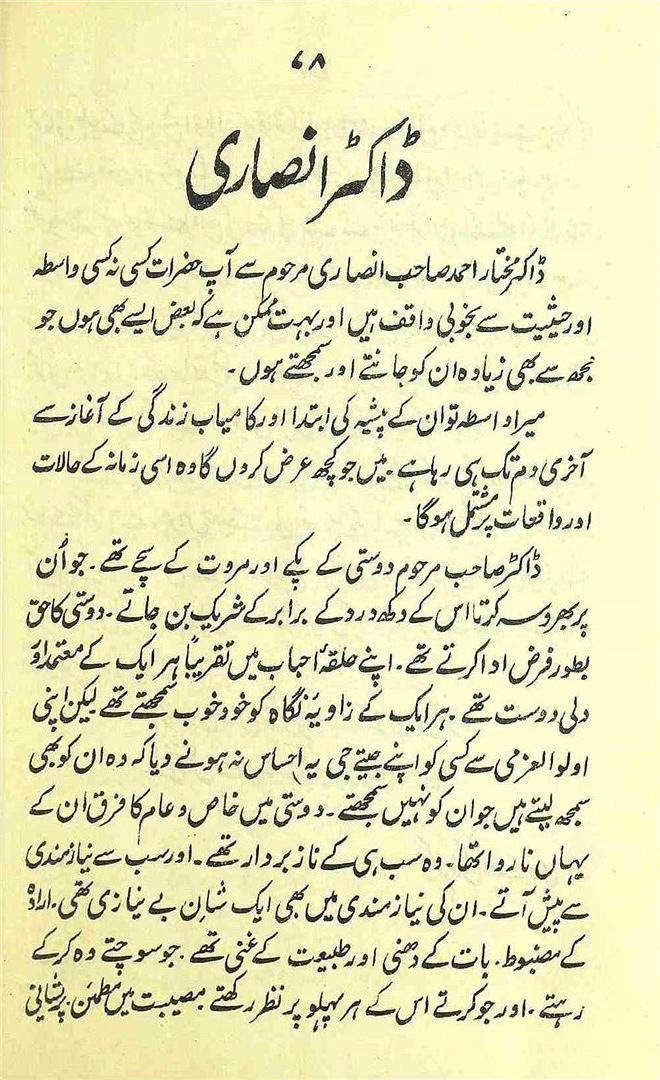 ۷۸
ڈاکٹر انصاری
ڈاکٹر مختار احمد صاحب انصاری مرحوم سے آپ حضرات کسی نہ کسی واسطہ
اور حیثیت سے بخوبی واقف ہیں اور بہت ممکن ہے کہ بعض ایسے بھی ہوں جو
مجھ سے بھی زیادہ ان کو جانتے اور سمجھتے ہوں۔
میرا واسطہ تو ان کے پیشہ کی ابتدا اور کامیاب زندگی کے آغاز سے
آخری دم تک ہی رہا ہے۔ میں جو کچھ عرض کروں گا وہ اسی زمانہ کے حالات
اور واقعات پر مشتمل ہوگا۔
ڈاکٹر صاحب مرحوم دوستی کے پکے اور مروت کے سچے تھے۔ جو اُن
پر بھروسہ کرتا اس کے دکھ درد کے برابر کے شریک بن جاتے۔ دوستی کا حق
بطور فرض ادا کرتے تھے۔ اپنے حلقۂ احباب میں تقریباً ہر ایک کے معتمد اور
دلی دوست تھے۔ ہر ایک کے زاویۂ نگاہ کو خود خوب سمجھتے تھے لیکن اپنی
اولوالعزمی سے کسی کو اپنے جیتے جی یہ احساس نہ ہونے دیا کہ وہ ان کو بھی
سمجھ لیتے ہیں جو ان کو نہیں سمجھتے۔ دوستی میں خاص و عام کا فرق ان کے
یہاں ناروا تھا۔ وہ سب ہی کے ناز بردار تھے۔ اور سب سے نیازمندی
سے پیش آتے۔ ان کی نیازمندی میں بھی ایک شانِ بے نیازی تھی۔ ارادہ
کے مضبوط۔ بات کے دھنی اور طبیعت کے غنی تھے۔ جو سوچتے وہ کر کے
رہتے۔ اور جو کرتے اس کے ہر پہلو پر نظر رکھتے۔ مصیبت میں مطمئن۔ پریشانی